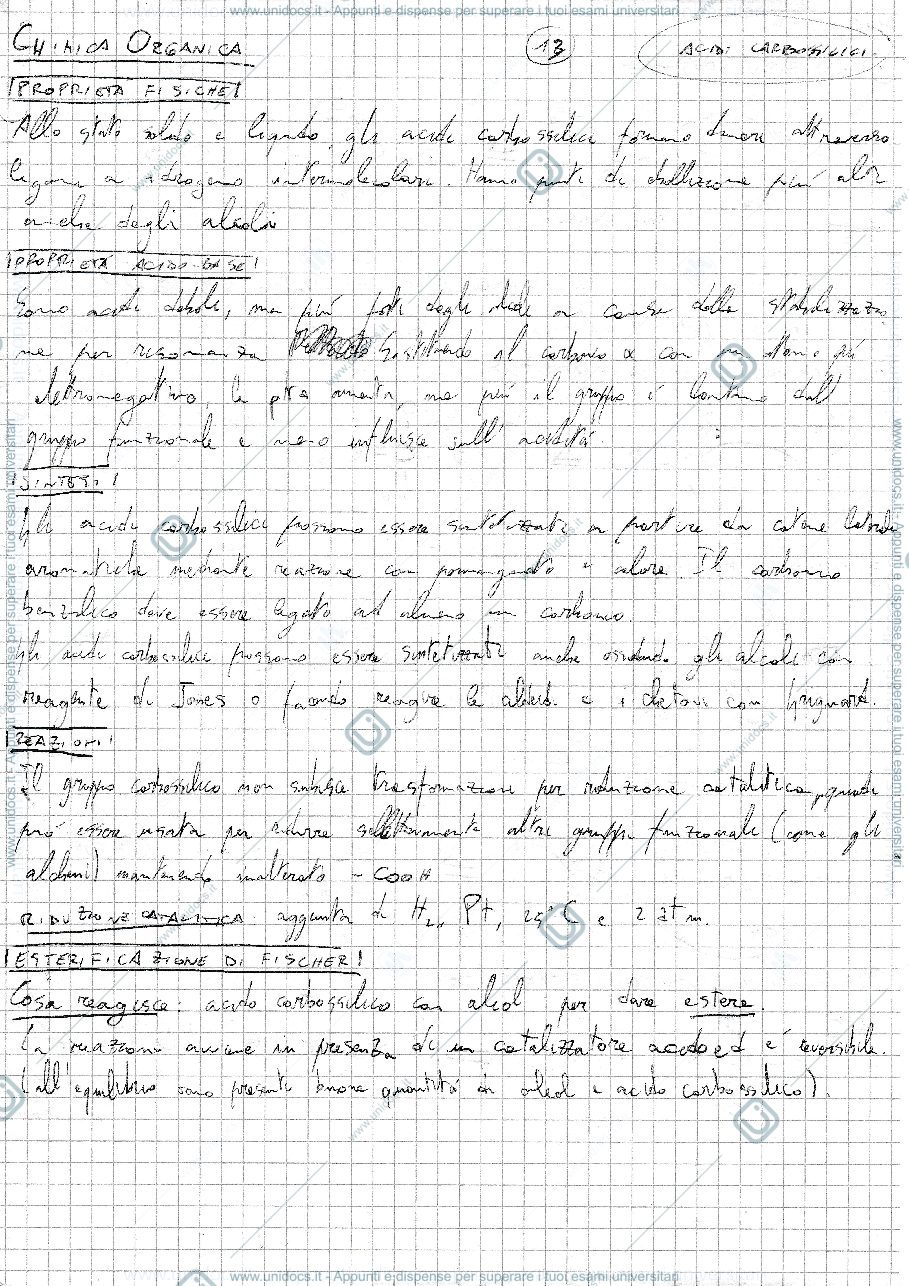 www.unidocs.it - Appunti e dispense per superare i tuoi esami universitari
CHIMICA ORGANICA 13 ACIDI CARBOSSILICI
PROPRIETÀ FISICHE
Allo stato solido e liquido, gli acidi carbossilici formano dimeri attraverso
legami a idrogeno intermolecolari. Hanno punti di ebollizione più alti
anche degli alcoli
PROPRIETÀ ACIDO-BASE
Sono acidi deboli, ma più forti degli a causa della stabilizzazio
ne per risonanza Sostituendo il carbonio α con un atomo più
elettronegativo, la pka aumenta, ma più il gruppo è lontano dall'
gruppo funzionale e meno influisce sull'acidità
SINTESI
Gli acidi carbossilici possono essere sintetizzati a partire da catene laterali
aromatiche mediante reazione con permanganato e calore Il carbonio
benzilico deve essere legato ad almeno un carbonio.
Gli acidi carbossilici possono essere sintetizzati anche ossidando gli alcoli con
reagente di Jones o facendo reagire le aldeidi e i chetoni con Grignard.
REAZIONI
Il gruppo carbossilico non subisce trasformazioni per riduzione catalitica, quindi
può essere usata per ridurre selettivamente altri gruppi funzionali (come gli
alcheni) mantenendo inalterato -COOH
RIDUZIONE CATALITICA: aggiunta di H2, Pt, 25°C e 2 atm.
ESTERIFICAZIONE DI FISCHER
Cosa reagisce: acido carbossilico con alcol per dare estere.
La reazione avviene in presenza di un catalizzatore acido ed è reversibile.
(all'equilibrio sono presenti buone quantità di alcol e acido carbossilico).
www.unidocs.it - Appunti e dispense per superare i tuoi esami universitari